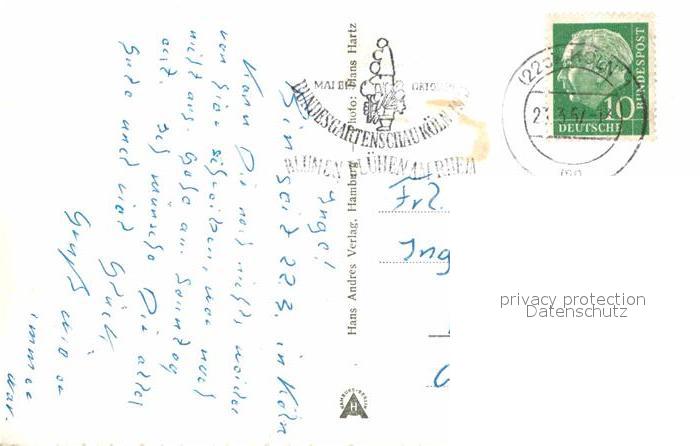 Inge!
Bin seit 22.3. in Köln
Kann Dir noch nichts weiter
von hier schreiben, war noch
nicht aus. Gehe am Sonntag
aus. Ich wünsche Dir alles
Gute und viel Glück.
Gruß wie es
immer
war.
Hans Andres Verlag, Hamburg Photo: Hans Hartz
HAMBURG-BERLIN
MAI BIS OKTOBER
BUNDESGARTENSCHAU KÖLN
BLUMEN BLÜHEN AM RHEIN
KÖLN
DEUTSCHE
BUNDESPOST
10
Frl.
Ing
privacy protection
Datenschutz